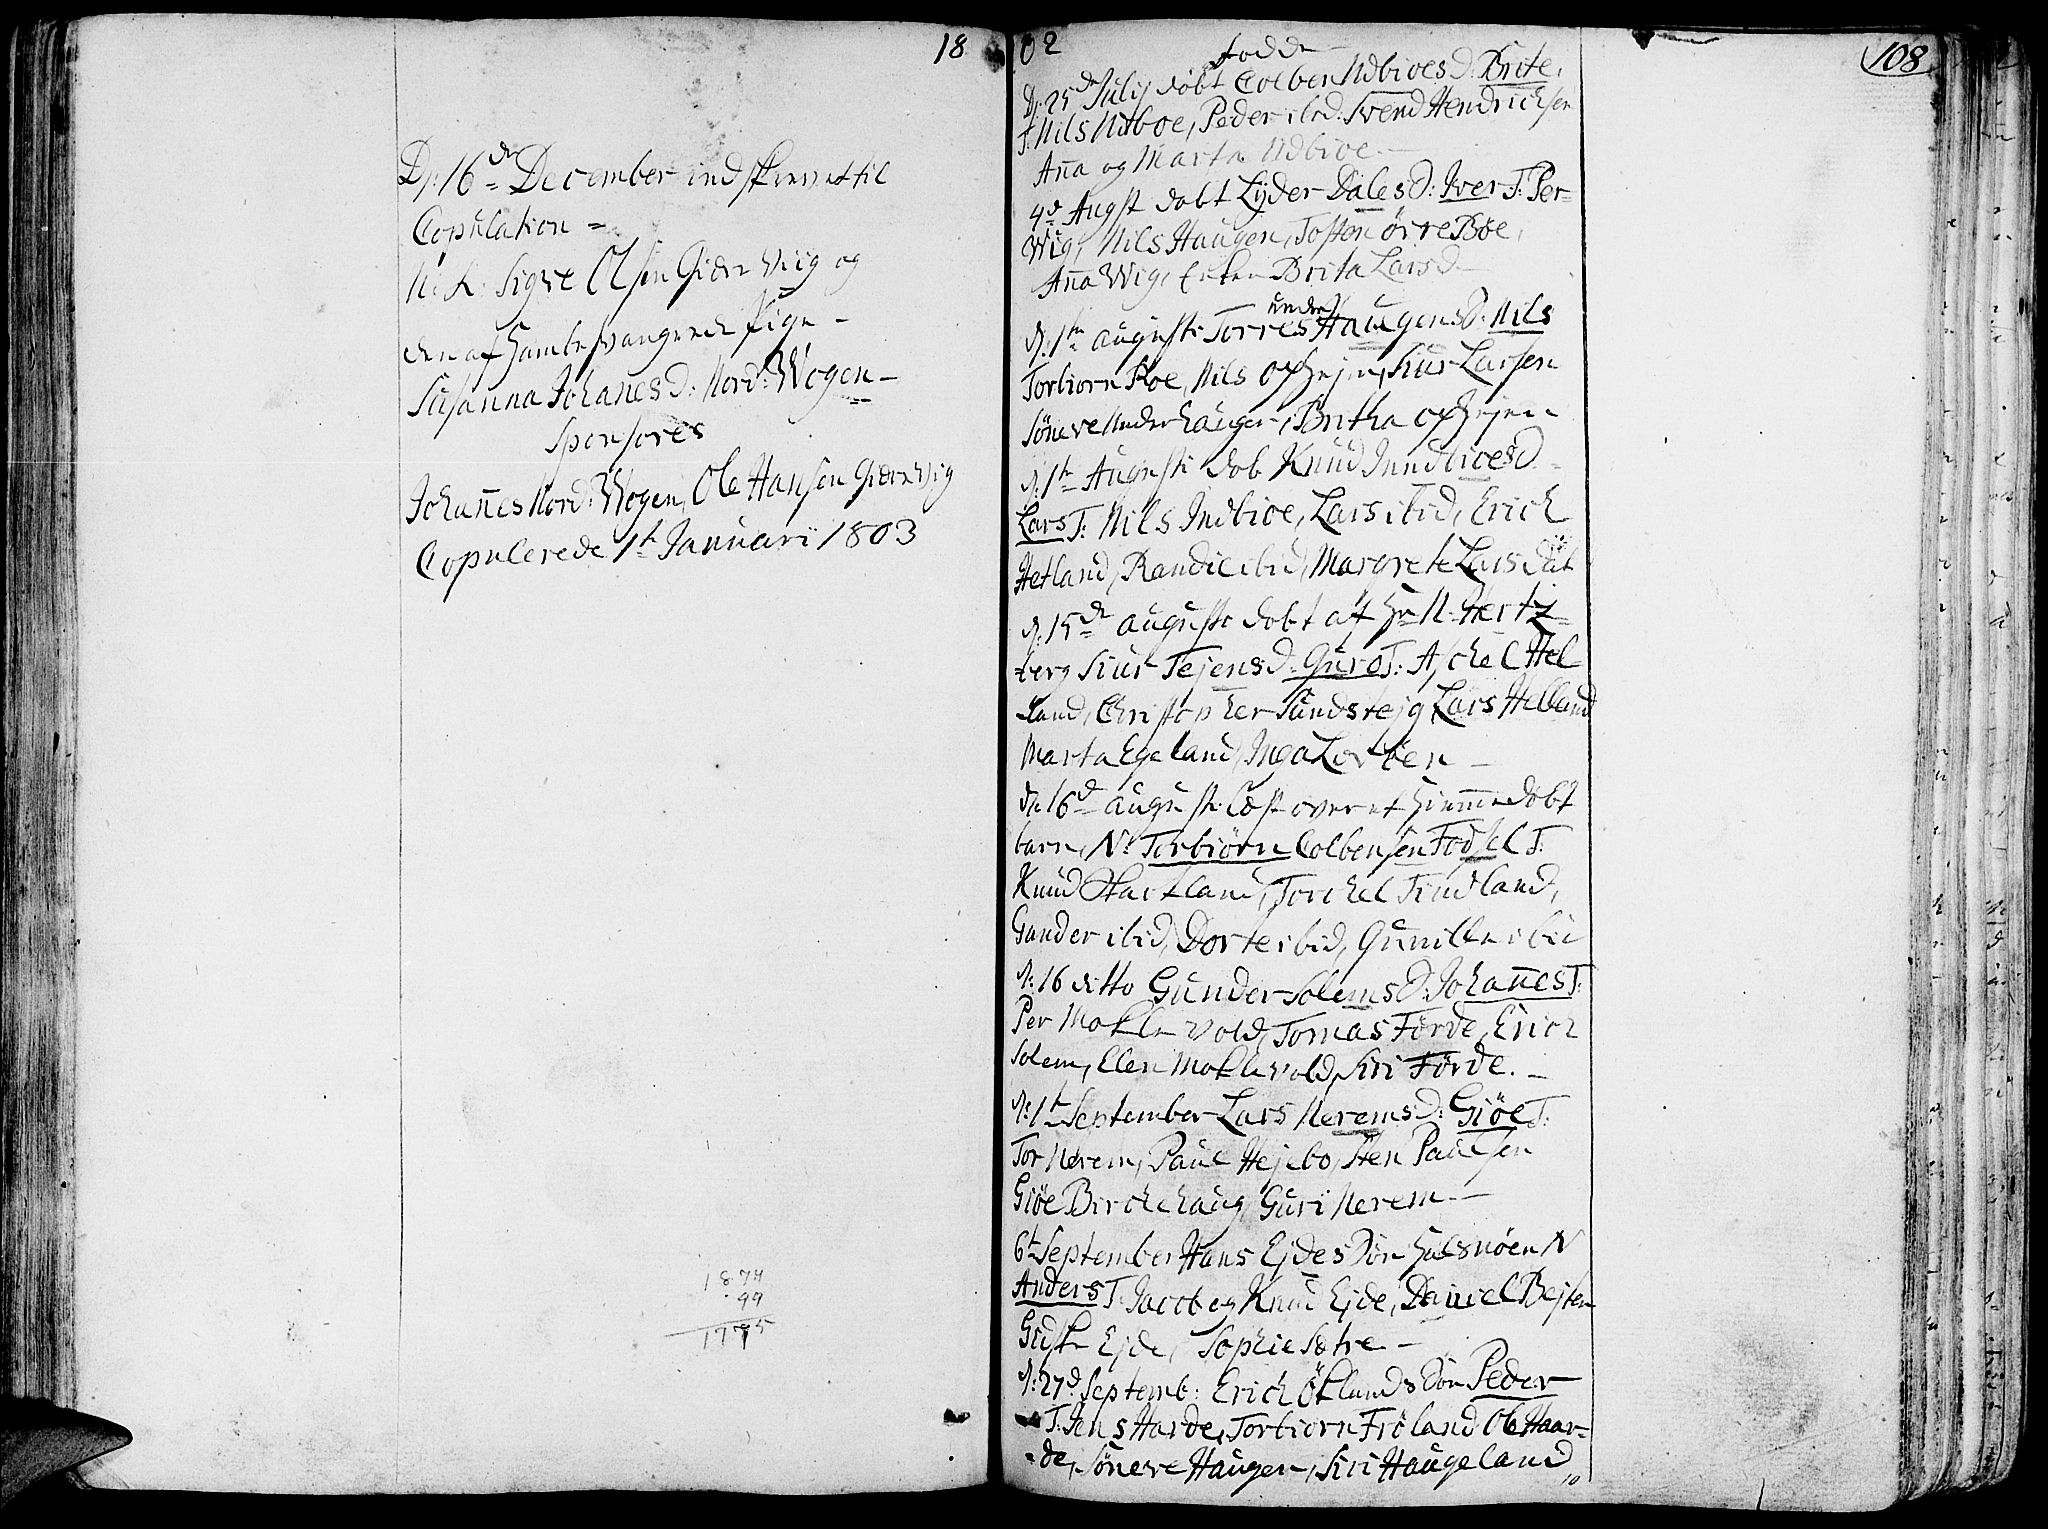 18
D: 16de December indskrevet til
Copulation =
N. K. Sigve Olsen Giderviig og
den af ham besvangrede Pige –
Susanna Johanes D: Nord: Wogen –
Sponsores
Johannes Nord: Wogen, Ole Hansen Gidervig
Copulerede 1te Januari 1803
1874
99
1775
02
Fødde
108
D: 25de Julij døbt Colben Udbioes D: Brite,
T: Nils Udboe, Peder ibid: Svend Hendrichsen
Aña og Marta Udbioe –
4de Augst døbt Lyder Dales D: Iver T: Per
Wig, Nils Haugen, Tosten Örre Böe,
Aña Wig, Brita Larsd –
d: 1te Augusti Torres under Haugens D: Nils
Torbiorn Roe, Nils Opheim, Siur Larsen
Söneve Underhaugen, Britha Opheim
d: 1te Augusti døb Knud Inndbioes D
Lars T: Nils Indbioe, Lars ibid, Erich
Hetland, Randi ibid, Margrete Larsdat
d: 15de Augusti døbt af Hr N. Hertz
berg Siur Tejens D: Guro T: Aschel Hel
land, Christopher Sundstejg Lars Helland
Marta Egeland, Inga Lovöen –
d: 16de Augusti læst over et hiemmedøbt
barn, N: Torbiörn Colbensen Fodsel T:
Knud Startland, Torchel Tindland,
Gunder ibid, Dorte ibid, Gunille ibid
d: 16 ditto Gunder Solems D: Johañes T:
Per Moklevold, Tomas Förde, Erich
Solem, Elen Moklevold, Siri Förde. –
d: 1te September Lars Nerems D: Giöe T:
Tor Nerem, Paul Hejebo, Sten Paulsen
Giöe Birchehaug Guri Nerem –
6te September Hans Ejdes Sön Halsnöen N
Anders T: Jacob og Knud Ejde, Daniel Bejten
Ejde, Sophie Sætre –
d: 27de Septemb: Erich Öklands Sön Peder
T: Jens Harde, Torbiorn Fröland Ole Haar=
=de, Söneve Haugen, Siri Haugeland
10